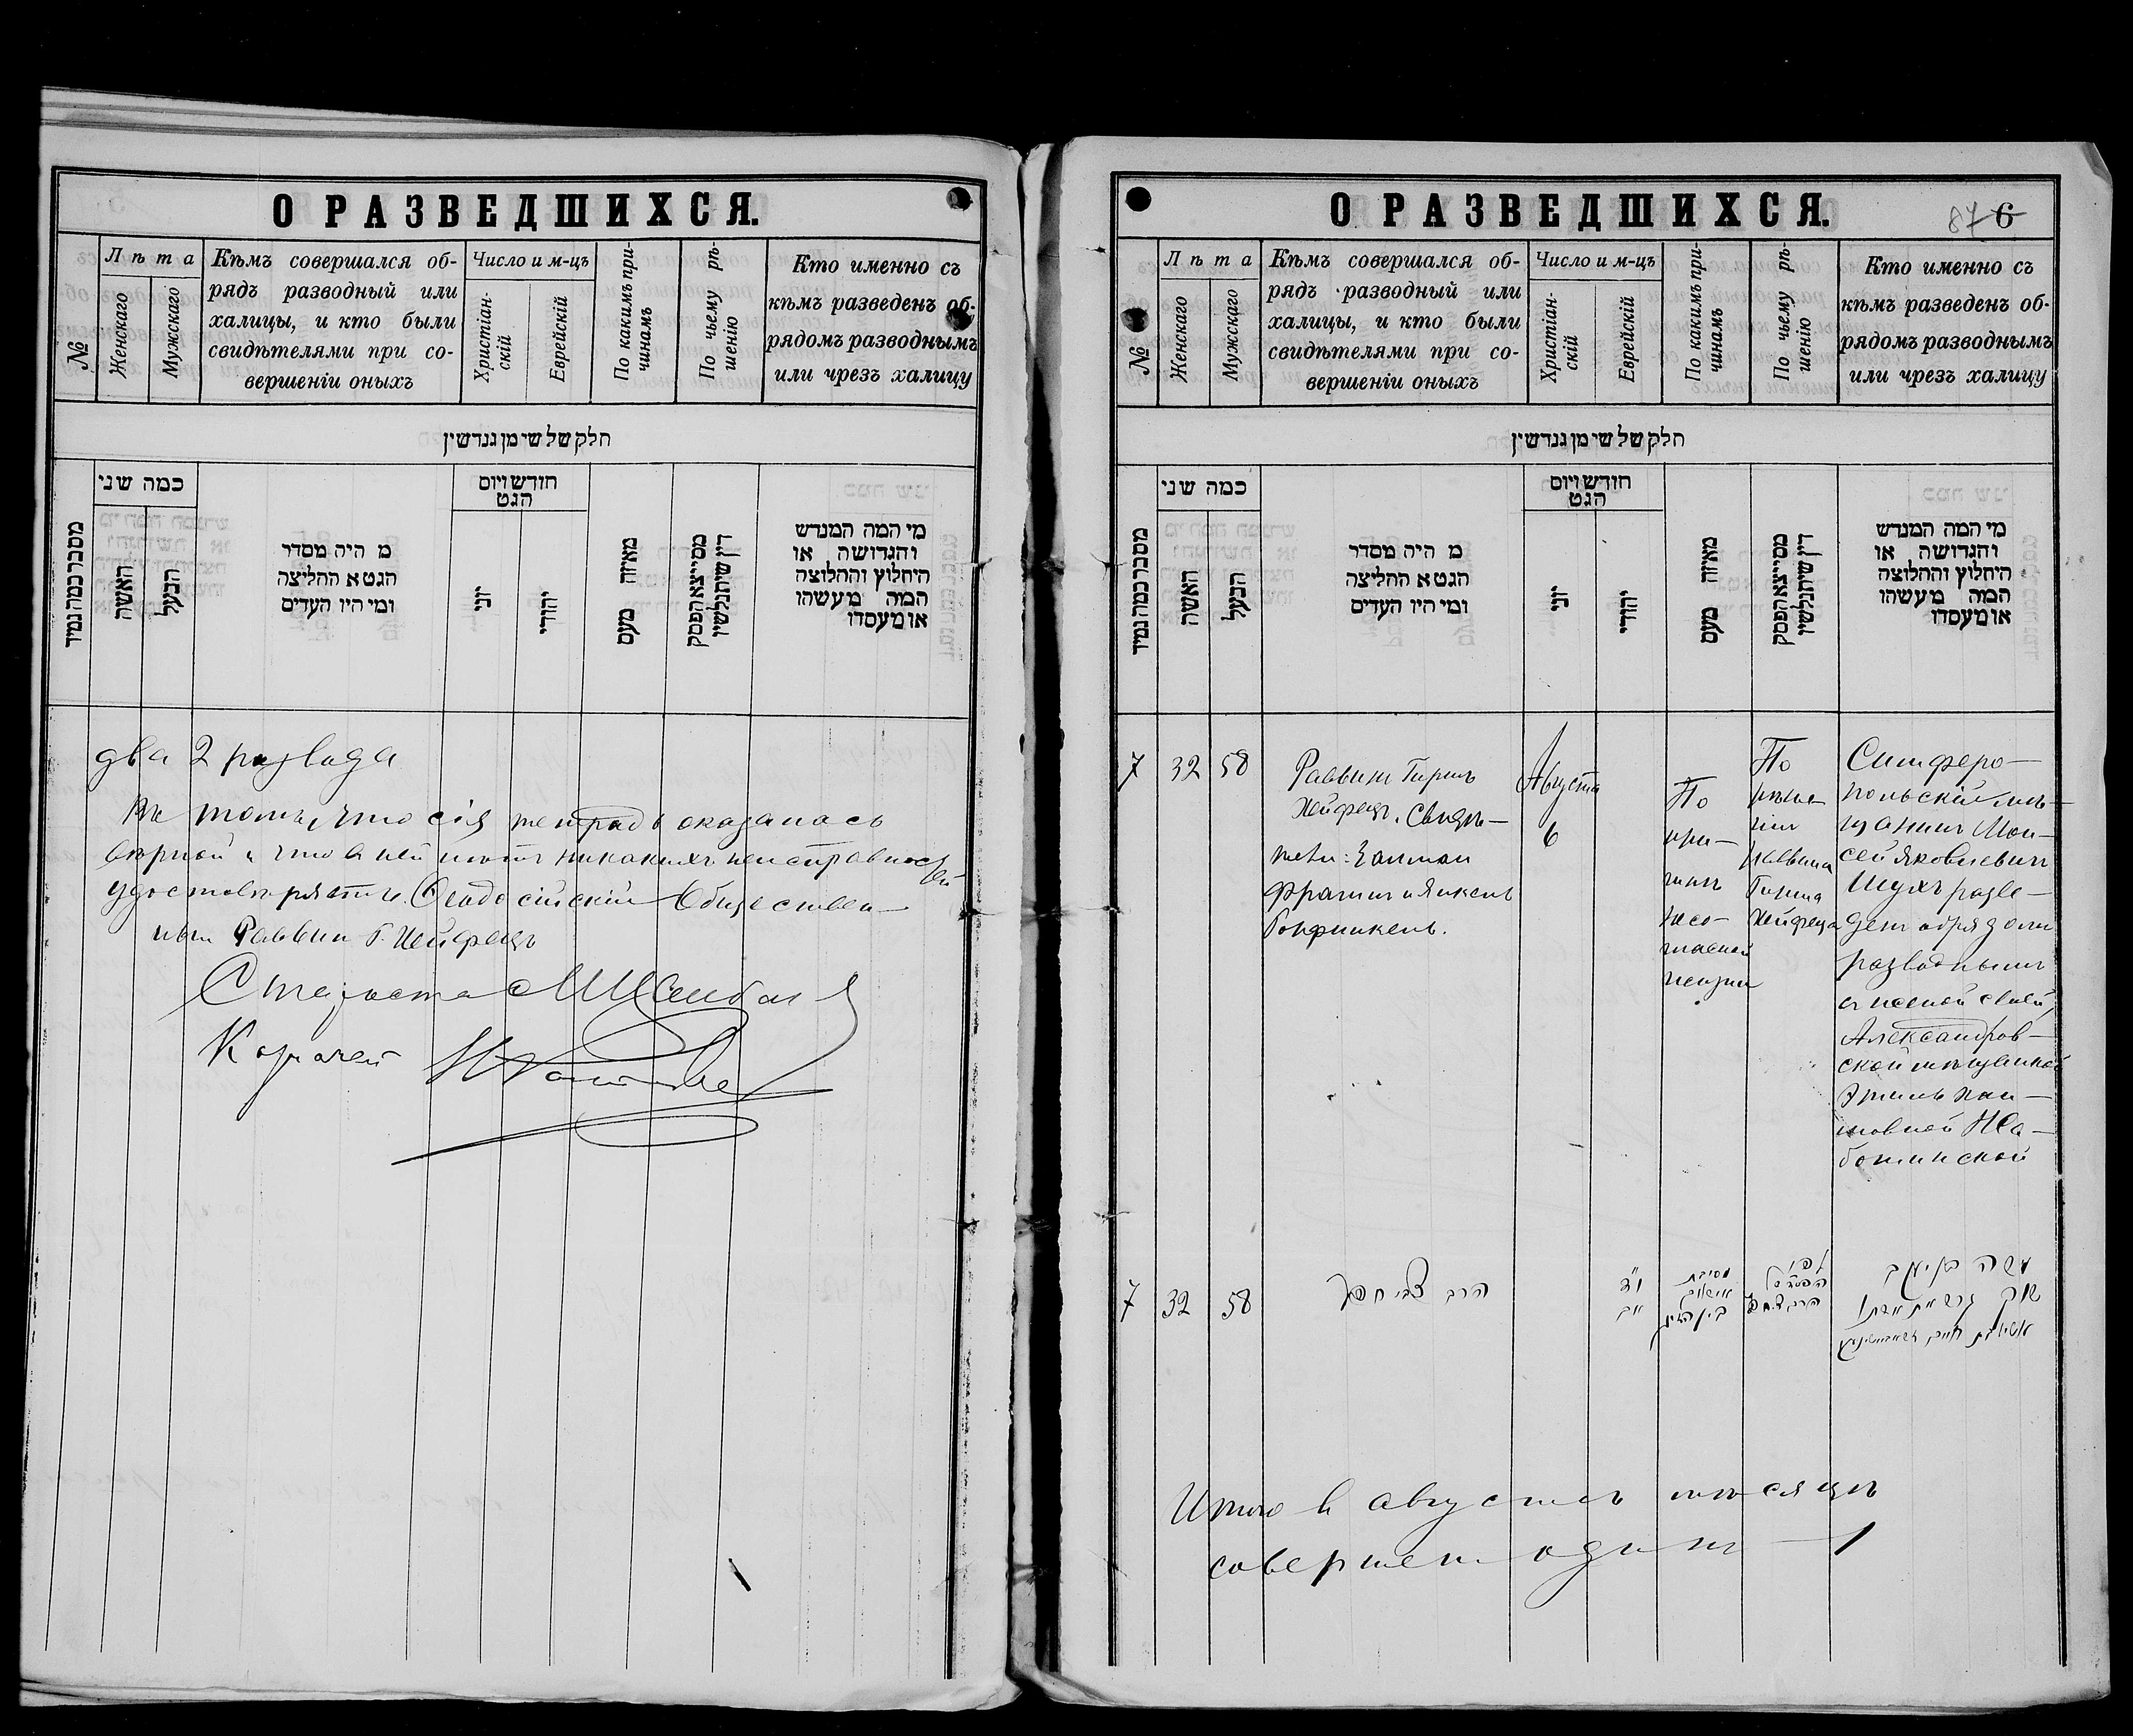 О РАЗВЕДШИХСЯ.
№
Лѣта
Женскаго
Мужскаго
Кѣмъ совершался об-
рядъ разводный или
халицы, и кто были
свидѣтелями при со-
вершеніи оныхъ
Число и м-цъ
Христіан-
скій
Еврейскій
По какимъ при-
чинамъ
По чьему рѣ-
шенію
Кто именно съ
кѣмъ разведенъ об-
рядомъ разводнымъ
или чрезъ халицу
חלק של שי מן גנדשין
כמה שני
האשה
הבעל
מ היה מסדר
הגט א ההליצה
ומי היו העדים
חודש ויום
הגט
יוני
יהודי
מאיזה טעם
מי המה המגדש
והגדושה או
היחלוץ וההלוצה
המה מעשהו
או מעסדו
два 2 развода
Въ томъ, что сія тетрадь оказалась
вѣрной и что въ ней нѣтъ никакихъ неисправностей
удостовѣряетъ. Ѳеодосійскій Обществен-
ный Раввин Г. Хейфецъ
Староста
Казначей
О РАЗВЕДШИХСЯ.
87 6
№
Лѣта
Женскаго
Мужскаго
Кѣмъ совершался об-
рядъ разводный или
халицы, и кто были
свидѣтелями при со-
вершеніи оныхъ
Число и м-цъ
Христіан-
скій
Еврейскій
По какимъ при-
чинамъ
По чьему рѣ-
шенію
Кто именно съ
кѣмъ разведенъ об-
рядомъ разводнымъ
или чрезъ халицу
חלק של שי מן גנדשין
כמה שני
האשה
הבעל
מ היה מסדר
הגט א ההליצה
ומי היו העדים
חודש ויום
הגט
יוני
יהודי
מאיזה טעם
מי המה המגדש
והגדושה או
היחלוץ וההלוצה
המה מעשהו
או מעסדו
7
32
58
Раввин Гиршъ
Хейфецъ. Свидѣ-
тели: Залман
Фратин и Янкель
Гокфинкель.
Августа
6
По
при-
чинѣ
несо-
гласной
жизни
По
рѣше-
нію
Раввина
Гирша
Хейфеца
Симферо-
польскій мѣ-
щанинъ Мои-
сей Яковлевич
Шухъ разве-
ден обрядом
разводнымъ
съ женой своей,
Александров-
ской мѣщанкой
Этель Хаи-
мовной Жа-
ботинской
7
32
58
הרב צבי חפץ
משה בן יעקב
Итого в августѣ мѣсяцѣ
совершен один — 1